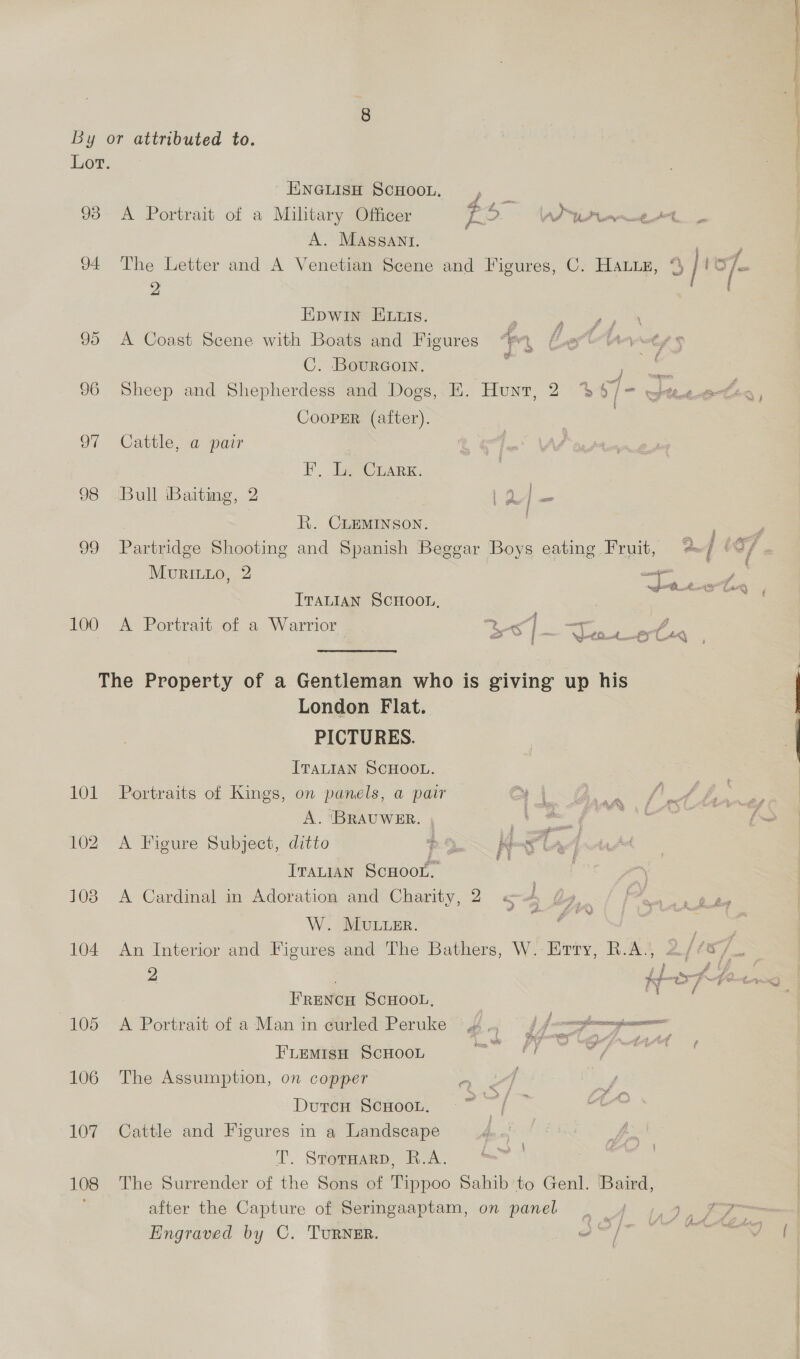 8
By or attributed to.
Lot.
ENGLISH SCHOOL,
93 A Portrait of a Military Officer £5
A. MASSANI.
94 The Letter and A Venetian Scene and Figures, C. HALLE,
2
EDWIN ELLIS.
95 A Coast Scene with Boats and Figures
C. BOURGOIN.
96 Sheep and Shepherdess and Dogs, E. HUNT, 2
COOPER (after).
97 Cattle, a pair
F. L. CLARK.
98 Bull Baiting, 2 12/-
R. CLEMINSON.
99 Partridge Shooting and Spanish Beggar Boys eating Fruit, 2/10/-
MURILLO, 2
ITALIAN SCHOOL,
100 A Portrait of a Warrior
The Property of a Gentleman who is giving up his
London Flat.
PICTURES.
ITALIAN SCHOOL.
101 Portraits of Kings, on panels, a pair
A. BRAUWER.
102 A Figure Subject, ditto
ITALIAN SCHOOL.
103 A Cardinal in Adoration and Charity, 2
W. MULLER.
104 An Interior and Figures and The Bathers, W. ETTY, R.A., 2/10/-
2
FRENCH SCHOOL,
105 A Portrait of a Man in curled Peruke
FLEMISH SCHOOL
106 The Assumption, on copper
DUTCH SCHOOL,
107 Cattle and Figures in a Landscape
T. STOTHARD, R.A.
108 The Surrender of the Sons of Tippoo Sahib to Genl. Baird,
after the Capture of Seringaaptam, on panel
Engraved by C. TURNER.